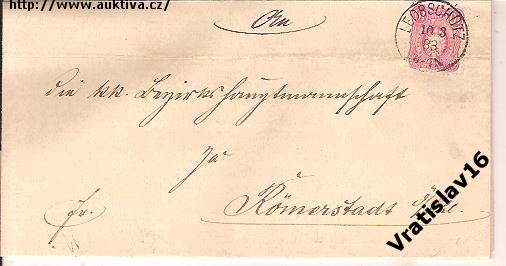 http://www.auktiva.cz/
An
LEOBSCHÜTZ
10 3
83
die kk. Bezirkshauptmannschaft
zu
Römerstadt
fr.
Vratislav16